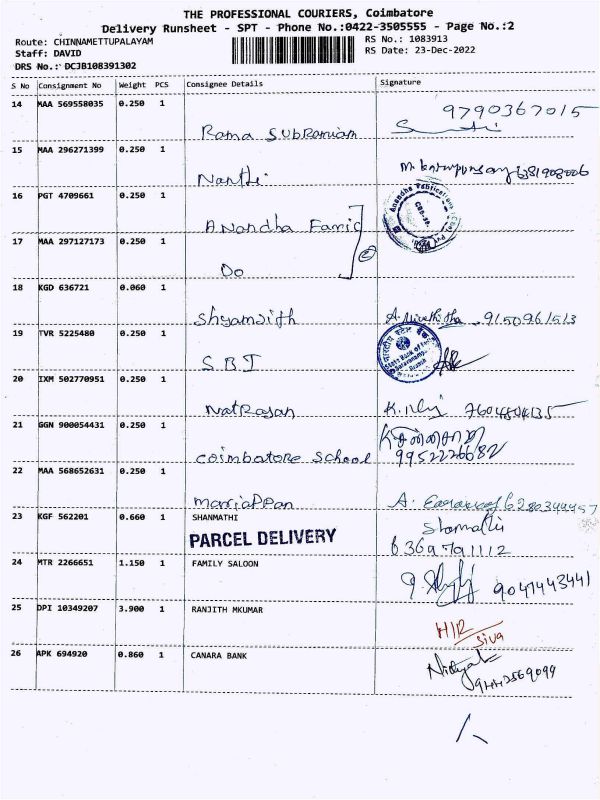 THE PROFESSIONAL COURIERS, Coimbatore
Delivery Runsheet - SPT - Phone No.:0422-3505555 - Page No.:2
Route: CHINNAMETTUPALAYAM
Staff: DAVID
DRS No.: DCJB108391302
RS No.: 1083913
RS Date: 23-Dec-2022
S No Consignment No Weight PCS Consignee Details Signature
14 MAA 569558035 0.250 1 9790367015
Rama SUBRamiam
15 MAA 296271399 0.250 1
Nanthi
16 PGT 4709661 0.250 1
ANandha
17 MAA 297127173 0.250 1
Do
18 KGD 636721 0.060 1
Shyamjith 9150961513
19 TVR 5225480 0.250 1
S.B.I
20 IXM 502770951 0.250 1
NatRajan 7604804135
21 GGN 900054431 0.250 1
9952226682
coimbatore school
22 MAA 568652631 0.250 1
marriappan
23 KGF 562201 0.660 1 SHANMATHI
PARCEL DELIVERY
6369791112
24 MTR 2266651 1.150 1 FAMILY SALOON
9041443441
25 DPI 10349207 3.900 1 RANJITH MKUMAR
H/R
Siva
26 APK 694920 0.860 1 CANARA BANK